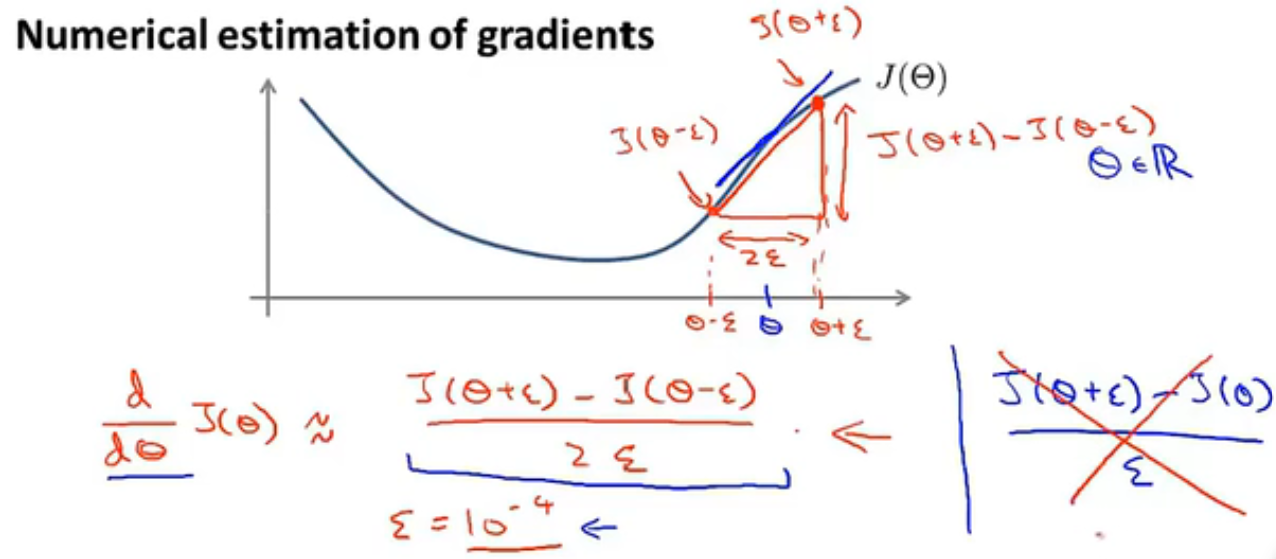 Numerical estimation of gradients
J(θ+ε)
J(Θ)
J(θ-ε)
J(θ+ε)-J(θ-ε)
θ∈ℝ
2ε
θ-ε θ θ+ε
d/dθ J(θ) ≈ J(θ+ε) - J(θ-ε) / 2ε ← | J(θ+ε) - J(θ) / ε
ε = 10^-4 ←